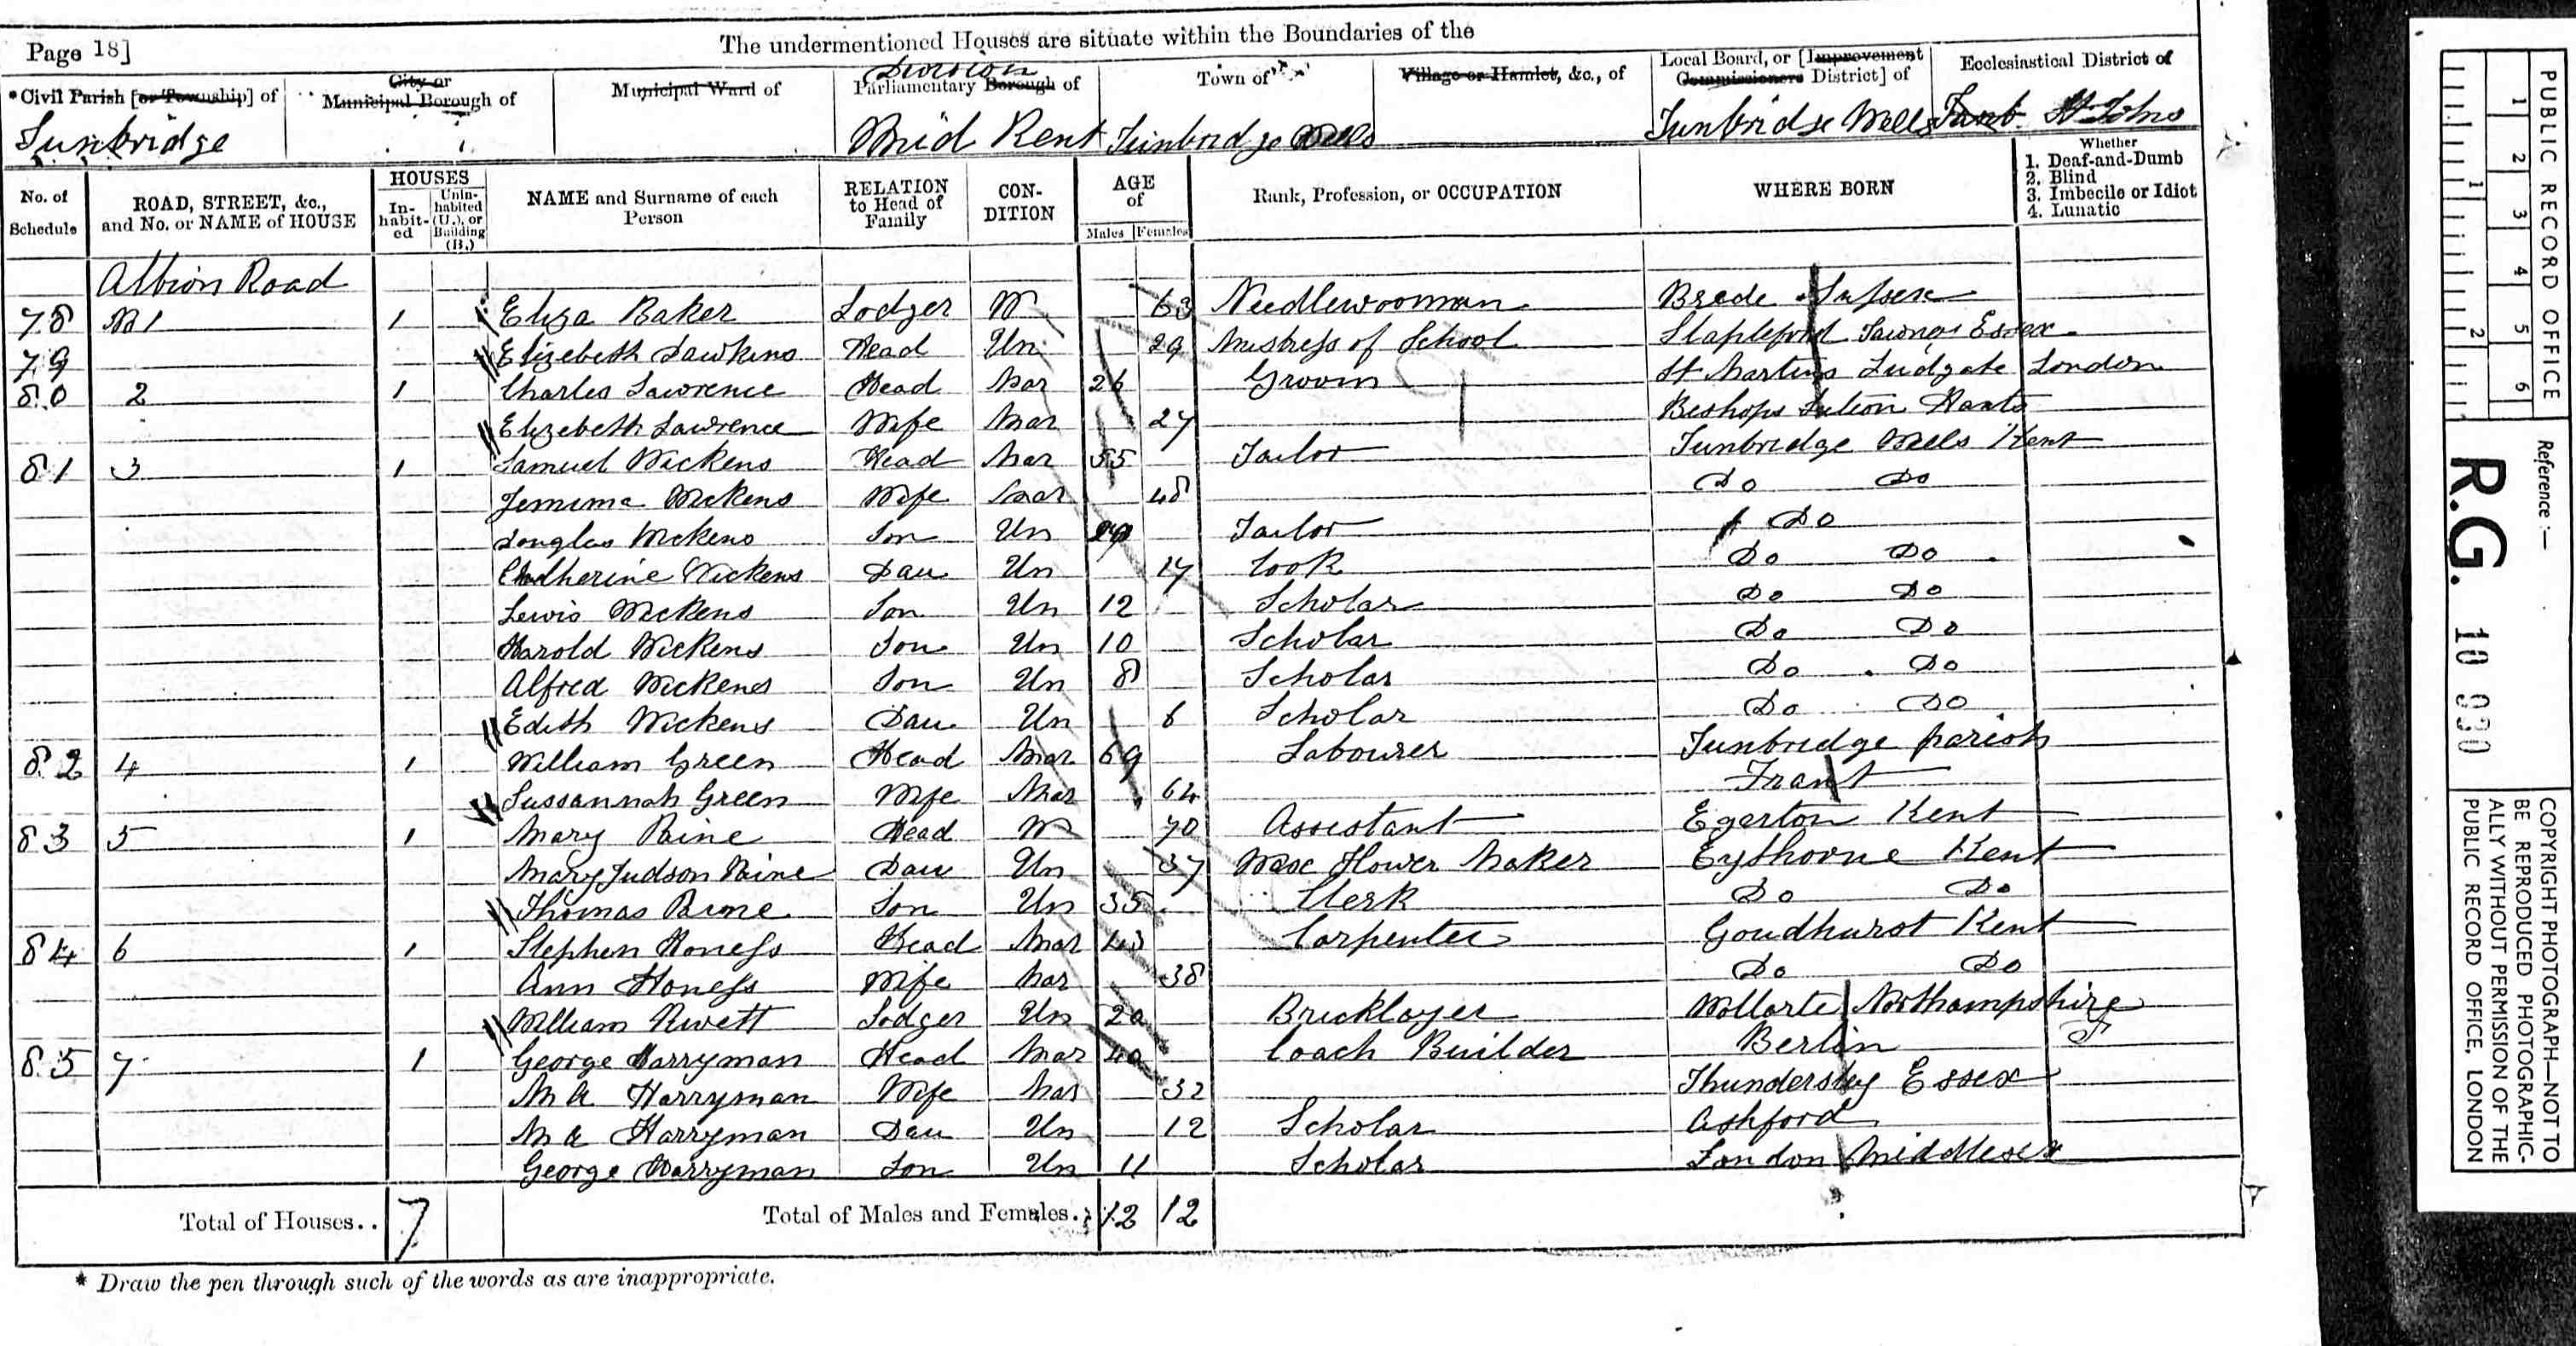 Page 18]
The undermentioned Houses are situate within the Boundaries of the
*Civil Parish [or Township] of
City or Municipal Borough of
Municipal Ward of
Division
Parliamentary Borough of
Town of
Village or Hamlet, &c., of
Local Board, or [Improvement Commissioners District] of
Ecclesiastical District of
Tunbridge
Mid Kent
Tunbridge Wells
Tunbridge Wells
Tunb. St Johns
No. of Schedule
ROAD, STREET, &c., and No. or NAME of HOUSE
HOUSES
In-habit-ed
Unin-habited (U.), or Building (B.)
NAME and Surname of each Person
RELATION to Head of Family
CON-DITION
AGE of
Males
Females
Rank, Profession, or OCCUPATION
WHERE BORN
Whether
1. Deaf-and-Dumb
2. Blind
3. Imbecile or Idiot
4. Lunatic
Albion Road
78 No 1 1 Eliza Baker Lodger W 63 Needlewooman Brede Sussex
79 Elizebeth Hawkins Head Un 29 Mistress of School Stapleford Essex
80 2 1 Charles Lawrence Head Mar 26 Groom St Martins Ludgate London
Elizebeth Lawrence Wife Mar 27 Bishops Sution Hants
81 3 1 Samuel Wickens Head Mar 55 Tailor Tunbridge Wells Kent
Jemima Wickens Wife Mar 48 Do Do
Douglas Wickens Son Un Tailor Do
Catherine Wickens Dau Un 17 Cook Do Do
Lewis Wickens Son Un 12 Scholar Do Do
Harold Wickens Son Un 10 Scholar Do Do
Alfred Wickens Son Un 8 Scholar Do Do
Edith Wickens Dau Un 6 Scholar Do Do
82 4 1 William Green Head Mar 69 Labourer Tunbridge parish
Sussannah Green Wife Mar 64 Frant
83 5 1 Mary Paine Head W 70 Assistant Egerton Kent
Mary Judson Paine Dau Un 37 Wax Flower Maker Eythorne Kent
Thomas Son Un 35 Clerk Do Do
84 6 1 Stephen Honess Head Mar 43 Carpenter Goudhurst Kent
Ann Honess Wife Mar 38 Do Do
William Rivett Lodger Un 20 Bricklayer Northampshire
85 7 1 George Harryman Head Mar 40 Coach Builder Berlin
M A Harryman Wife Mar 32 Thundersley Essex
M A Harryman Dau Un 12 Scholar Ashford
George Harryman Son Un 11 Scholar London Middlesex
Total of Houses.. 7
Total of Males and Females.. 12 12
* Draw the pen through such of the words as are inappropriate.
PUBLIC RECORD OFFICE
1 2 3 4 5 6
1 2
Reference :—
R.G. 10 930
COPYRIGHT PHOTOGRAPH—NOT TO
BE REPRODUCED PHOTOGRAPHIC-
ALLY WITHOUT PERMISSION OF THE
PUBLIC RECORD OFFICE, LONDON